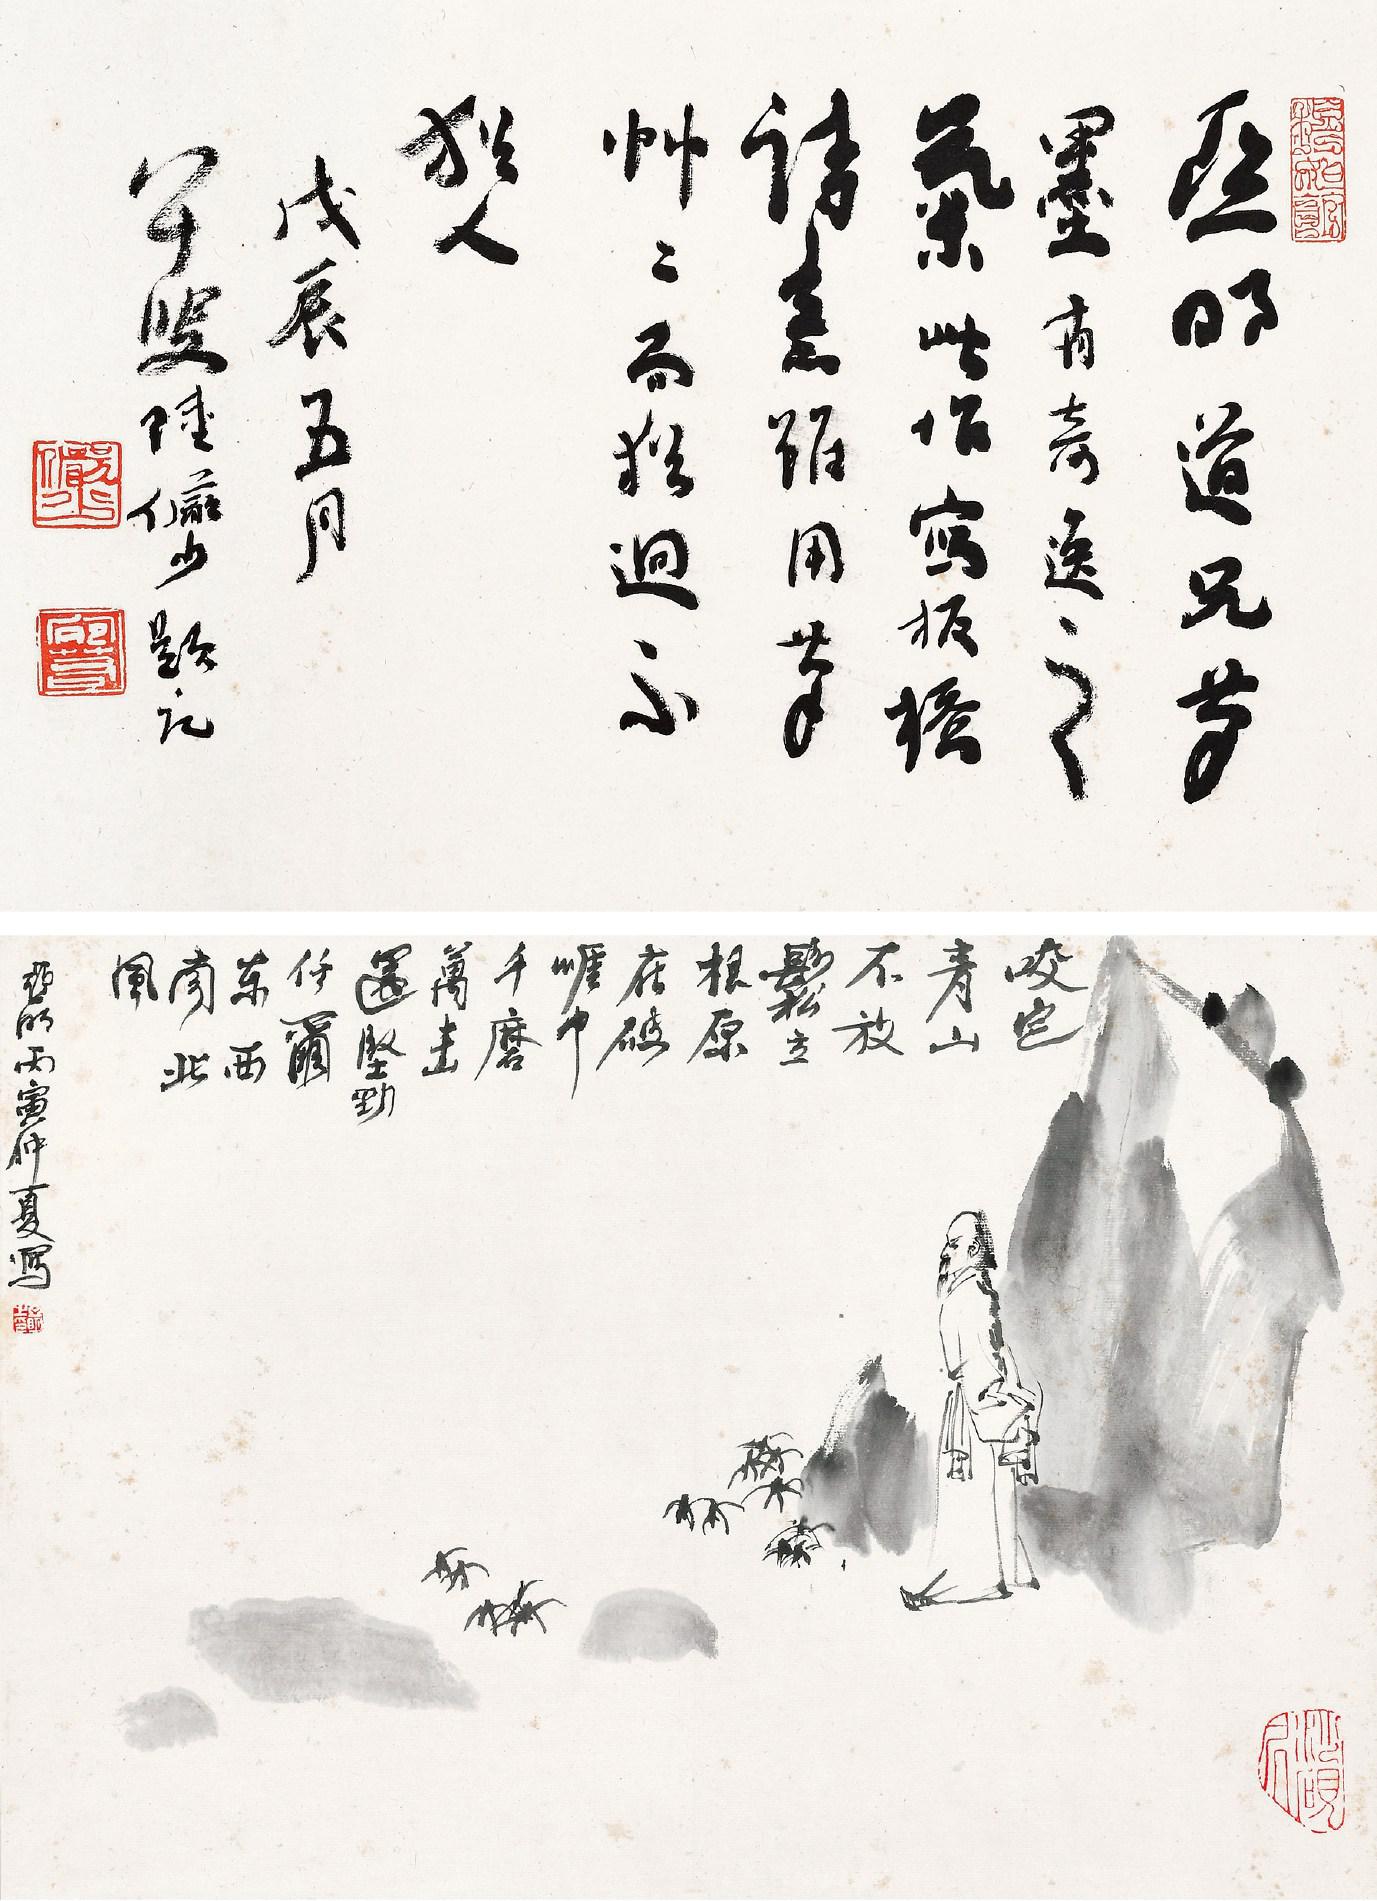 亞明道兄筆
墨有奇逸之
氣此恉寫板橋
詩意雖用筆
艸二而猶迥不
猶人
戊辰五月
宛叟陸儼少題記
咬定
青山
不放
鬆立
根原
在破
崕中
千磨
萬击
還堅勁
任爾
东西
南北
風
亞明丙寅仲夏寫